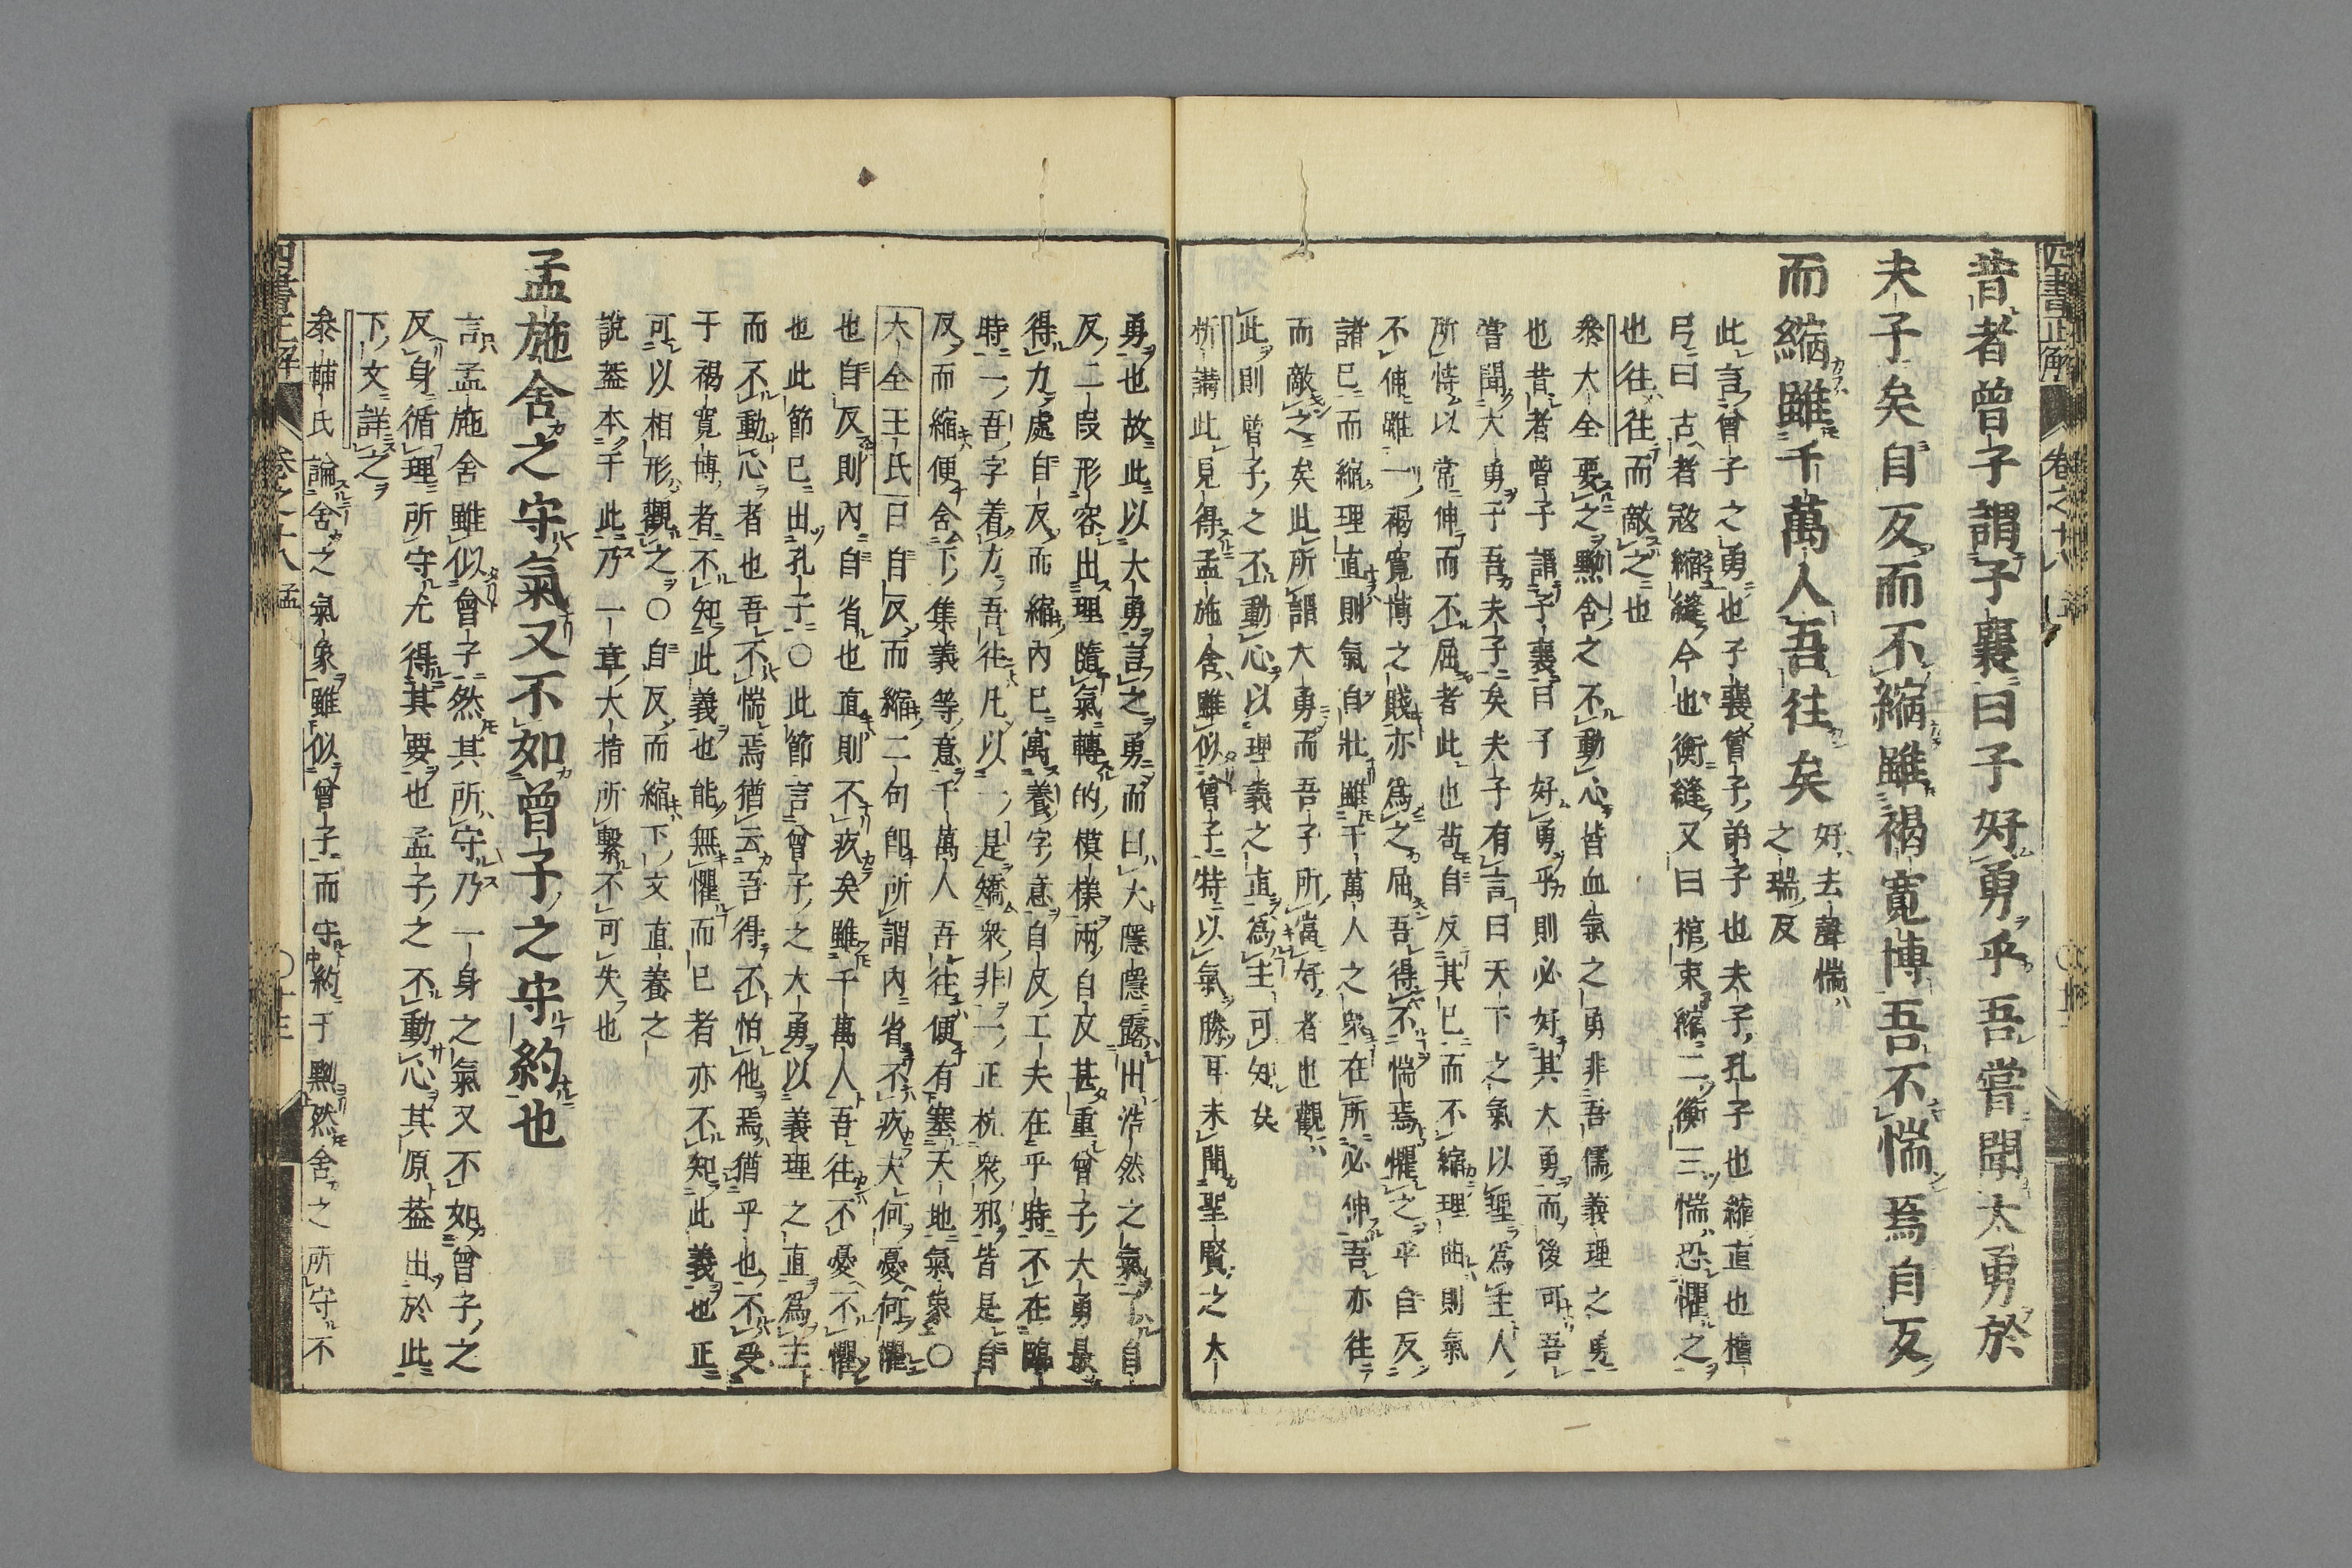 昔者曾子謂子襄曰子好勇乎吾嘗聞大勇於
夫子矣自反而不縮雖褐寬博吾不惴焉自反
而縮雖千萬人吾往矣
好去聲惴
之瑞反
此言曾子之勇也子襄曾子弟子也夫子孔子也縮直也檀
弓曰古者冠縮縫今也衡縫又曰棺束縮二衡三惴恐懼之
也往往而敵之也
參大全要之黝舍之不動心皆血氣之勇非吾儒義理之勇
也昔者曾子謂子襄曰子好勇乎則必好其大勇而後可吾
嘗聞大勇于吾夫子矣夫子有言曰天下之氣以理為主人
所恃以常伸而不屈者此也苟自反其已而不縮理曲則氣
不伸雖一褐寬博之賤亦為之屈吾得不惴焉懼之乎自反
諸已而縮理直則氣自壯雖千萬人之衆在所必伸吾亦往
而敵之矣此所謂大勇而吾子所當好者也觀
此則曾子之不動心以理義之直為主可知矣
析講此見得孟施舍雖似曾子特以氣勝耳未聞聖賢之大
勇也故此以大勇言之勇而曰大隱隱露出浩然之氣自
反二段形容出理隨氣轉的模樣兩自反甚重曾子大勇最
得力處自反而縮內已寓養字意自反工夫在乎時不在臨
時一吾字着力吾往凡以一是矯衆非一正抗衆邪皆是自
反而縮便舍下集義等意千萬人吾往便有塞天地氣象〇
大全王氏曰自反而縮二句卽所謂內省不疚夫何憂何懼
也自反則內自省也直則不疚矣雖千萬人吾往不憂不懼
也此節已出孔子〇此節言曾子之大勇以義理之直為主
而不動心者也吾不惴焉猶云吾得不怕他焉猶乎也不受
于褐寬博者不知此義也能無懼而已者亦不知此義也正
可以相形觀之〇自反而縮下文直養之
說蓋本于此乃一章大指所繫不可失也
孟施舍之守氣又不如曾子之守約也
言孟施舍雖似曾子然其所守乃一身之氣又不如曾子之
反身循理所守尤得其要也孟子之不動心其原蓋出於此
下文詳之
參輔氏論舍之氣象雖似曾子而守約于黝然舍之所守不
四書正解
卷之十八
四書正解
卷之十八孟
〇十三